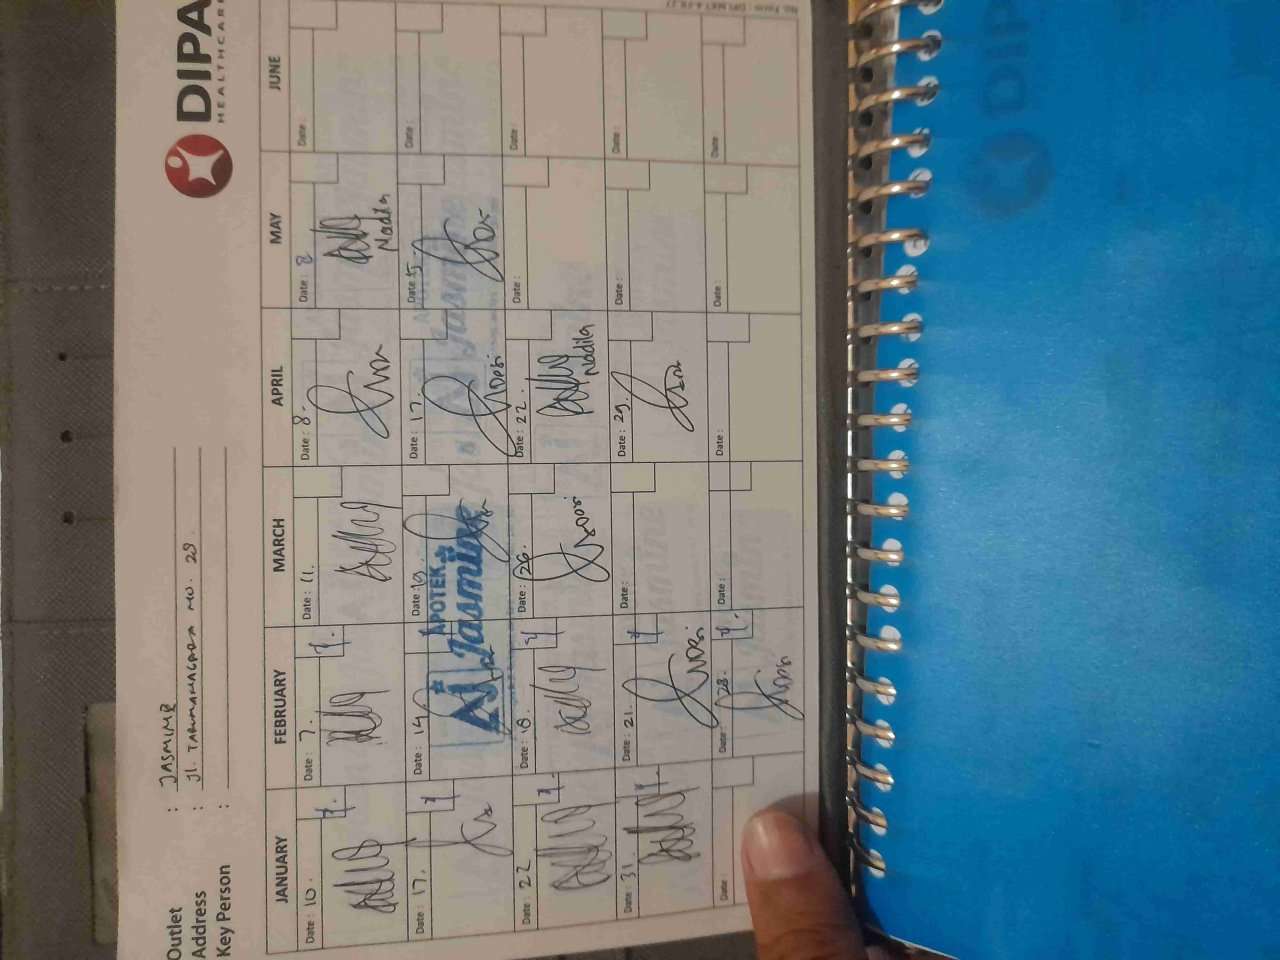 DIPA
HEALTHCAR
Outlet : JASMINE
Address : Jl. TARUMANAGARA NO. 29.
Key Person :
JANUARY FEBRUARY MARCH APRIL MAY JUNE
Date : 10. Date : 7. Date : 11. Date : 8. Date : 8 Date :
Nadila
Date : 17. Date : 14 Date : 19. Date : 17. Date : 15. Date :
APOTEK
Jasmine
Date : 22 Date : 18. Date : 26. Date : 22. Date : Date :
Nadila
Date : 31. Date : 21. Date : Date : 29. Date : Date :
Date : Date : 28. Date : Date : Date : Date :